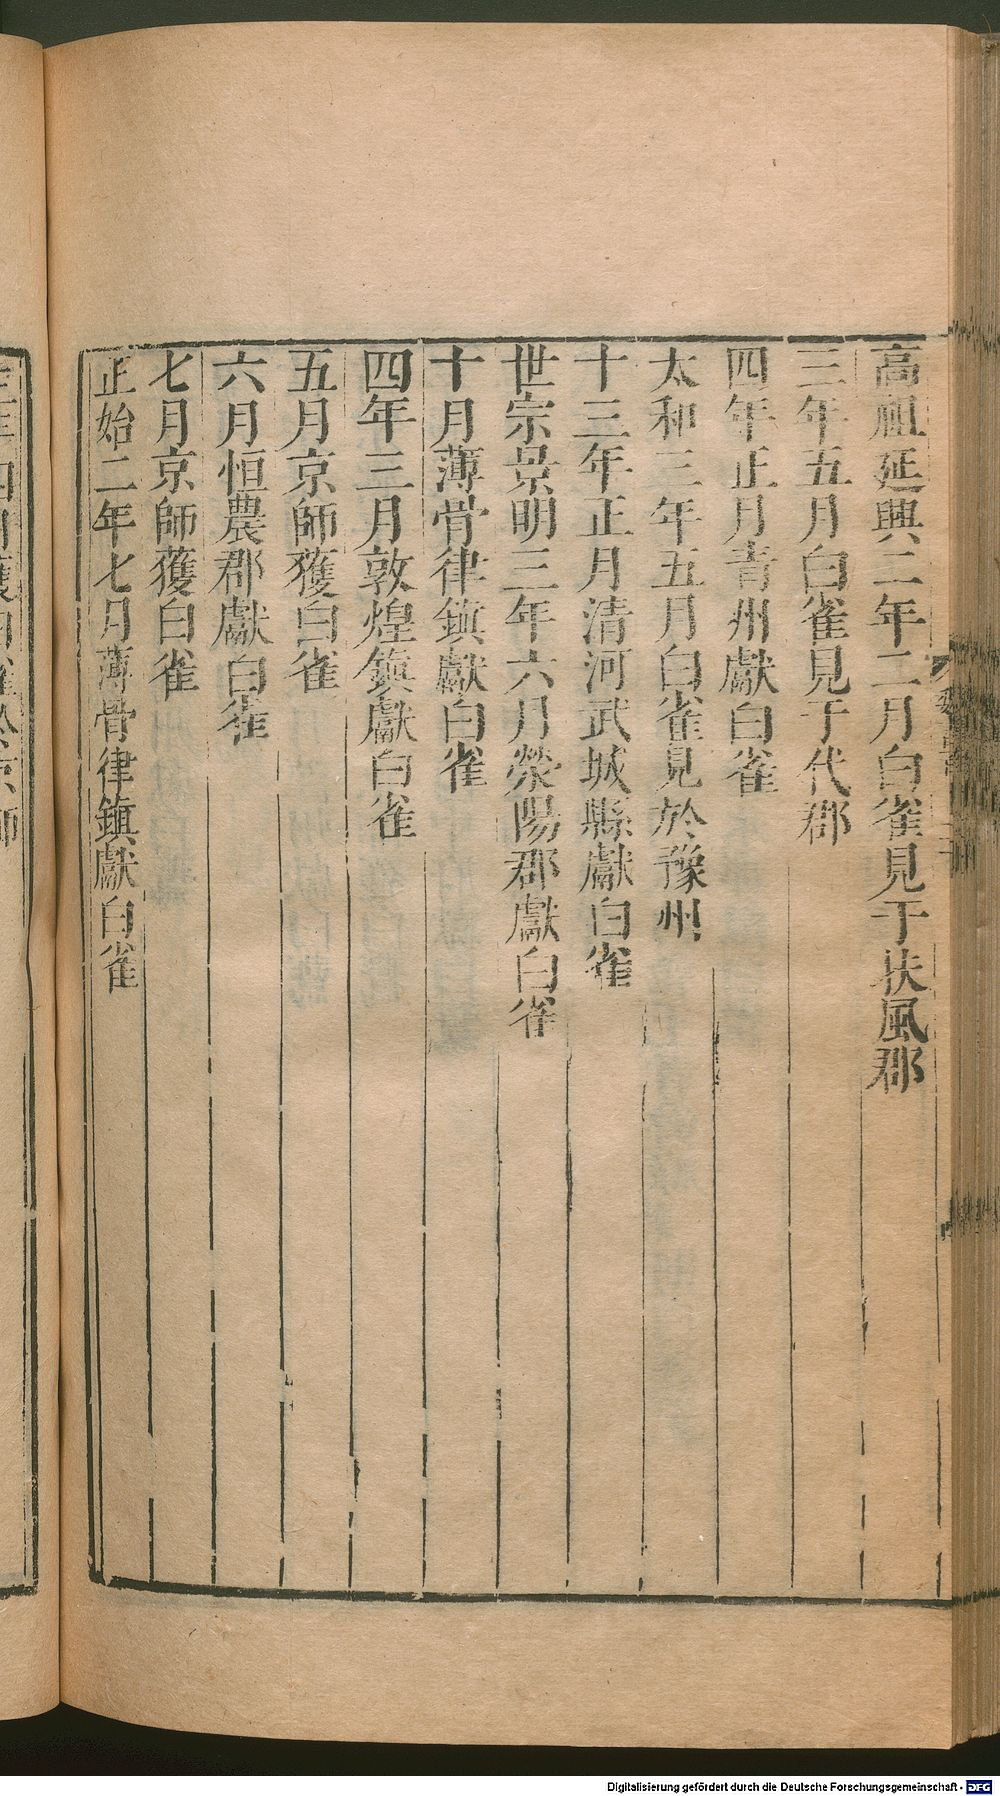 高祖延興二年二月白雀見于扶風郡
三年五月白雀見于代郡
四年正月青州獻白雀
太和三年五月白雀見於豫州
十三年正月清河武城縣獻白雀
世宗景明三年六月滎陽郡獻白雀
十月薄骨律鎮獻白雀
四年三月敦煌鎮獻白雀
五月京師獲白雀
六月恒農郡獻白雀
七月京師獲白雀
正始二年七月薄骨律鎮獻白雀
Digitalisierung gefördert durch die Deutsche Forschungsgemeinschaft - DFG